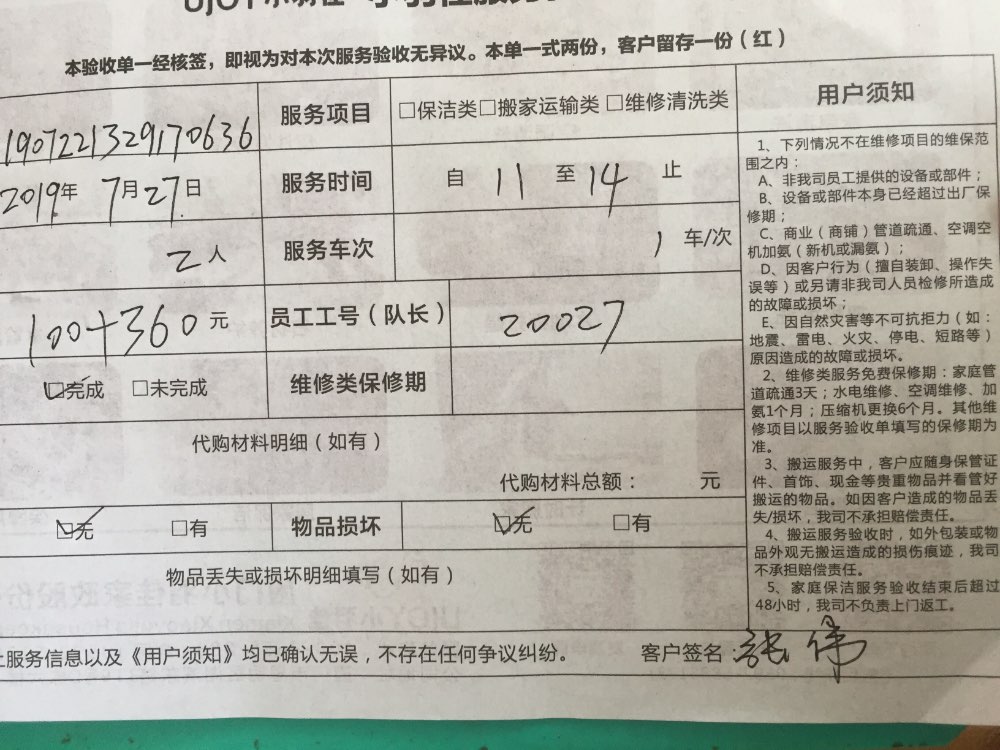 UJOY小羽佳
本验收单一经核签，即视为对本次服务验收无异议。本单一式两份，客户留存一份（红）
1907221329170636 服务项目 □保洁类□搬家运输类 □维修清洗类
2019年 7月27日 服务时间 自 11 至 14 止
2人 服务车次 1 车/次
100+360元 员工工号（队长） 20027
☑完成 □未完成 维修类保修期
代购材料明细（如有）
代购材料总额： 元
☑无 □有 物品损坏 ☑无 □有
物品丢失或损坏明细填写（如有）
上服务信息以及《用户须知》均已确认无误，不存在任何争议纠纷。 客户签名：张伟
用户须知
1、下列情况不在维修项目的维保范
围之内：
A、非我司员工提供的设备或部件；
B、设备或部件本身已经超过出厂保
修期；
C、商业（商铺）管道疏通、空调空
机加氨（新机或漏氨）；
D、因客户行为（擅自装卸、操作失
误等）或另请非我司人员检修所造成
的故障或损坏；
E、因自然灾害等不可抗拒力（如：
地震、雷电、火灾、停电、短路等）
原因造成的故障或损坏。
2、维修类服务免费保修期：家庭管
道疏通3天；水电维修、空调维修、加
氨1个月；压缩机更换6个月。其他维
修项目以服务验收单填写的保修期为
准。
3、搬运服务中，客户应随身保管证
件、首饰、现金等贵重物品并看管好
搬运的物品。如因客户造成的物品丢
失/损坏，我司不承担赔偿责任。
4、搬运服务验收时，如外包装或物
品外观无搬运造成的损伤痕迹，我司
不承担赔偿责任。
5、家庭保洁服务验收结束后超过
48小时，我司不负责上门返工。